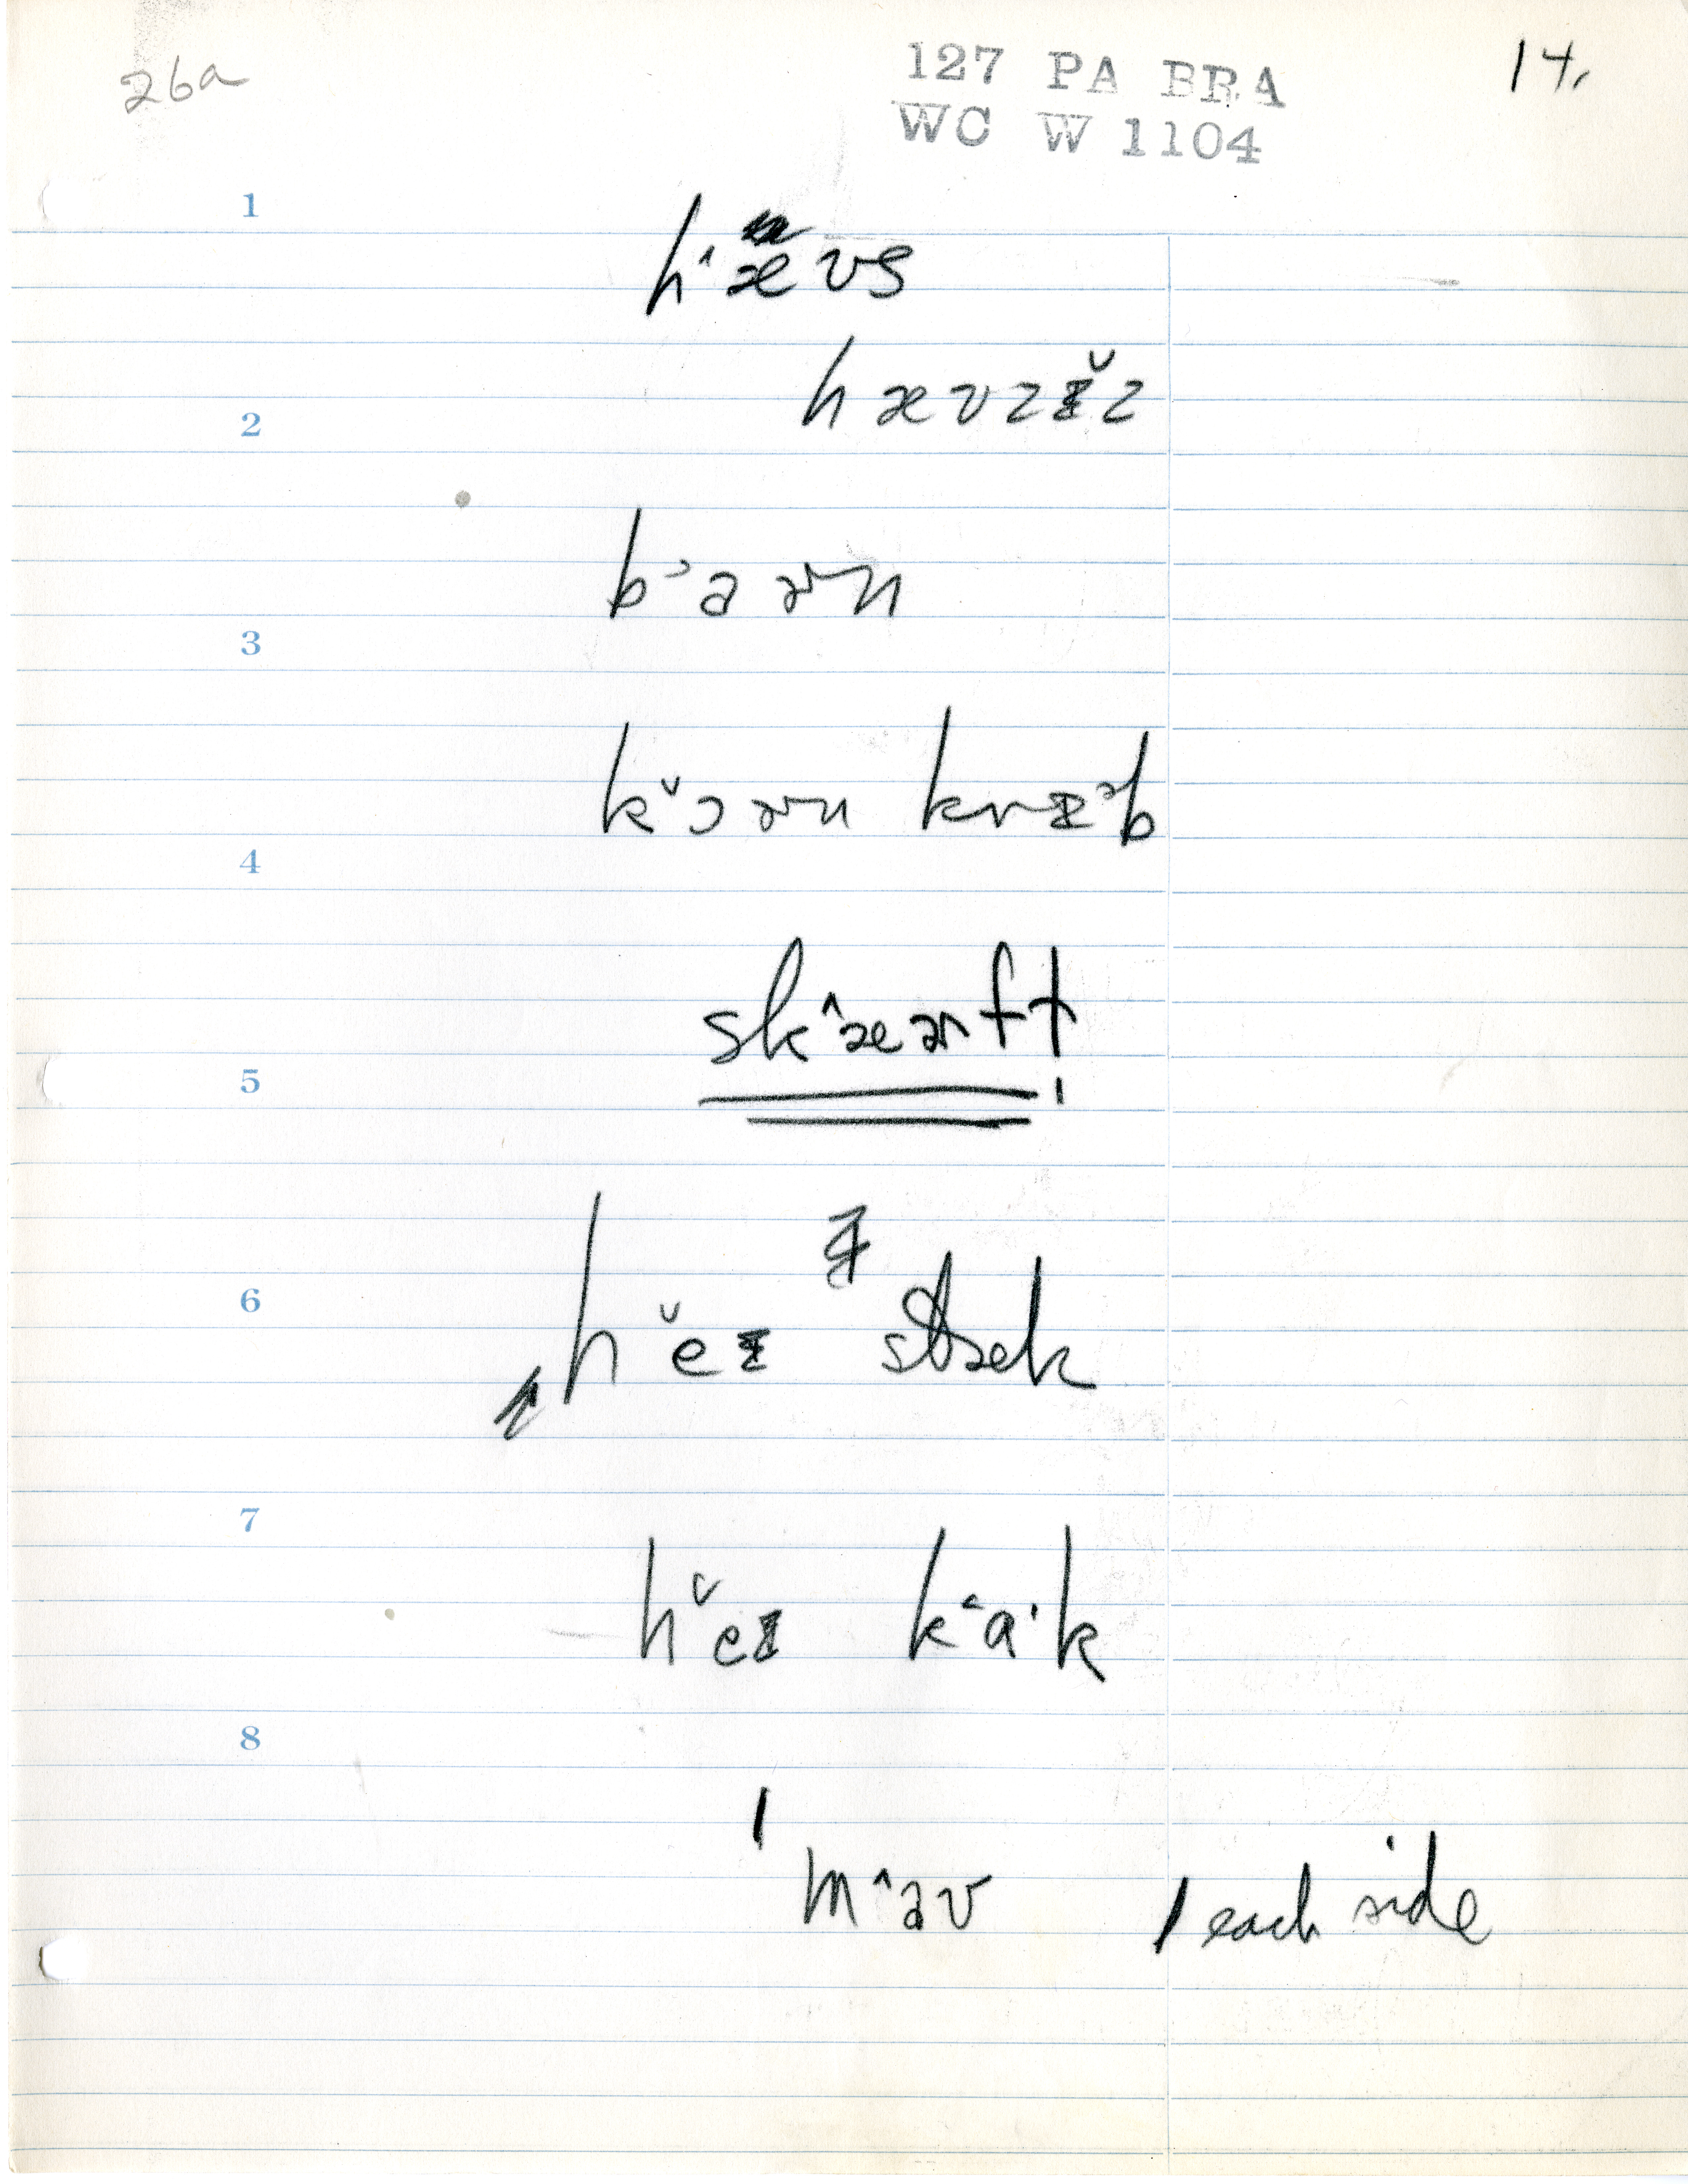 26a
127 PA BRA
14.
WC W 1104
1
hˆævs
hævzɪ̌z
2
b˃arn
3
kˇɔrn krɪ˃b
4
skˆærft
5
6
hˇeɪ stæk
7
hˇeɪ k˂a·k
8
mˆav
1 each side